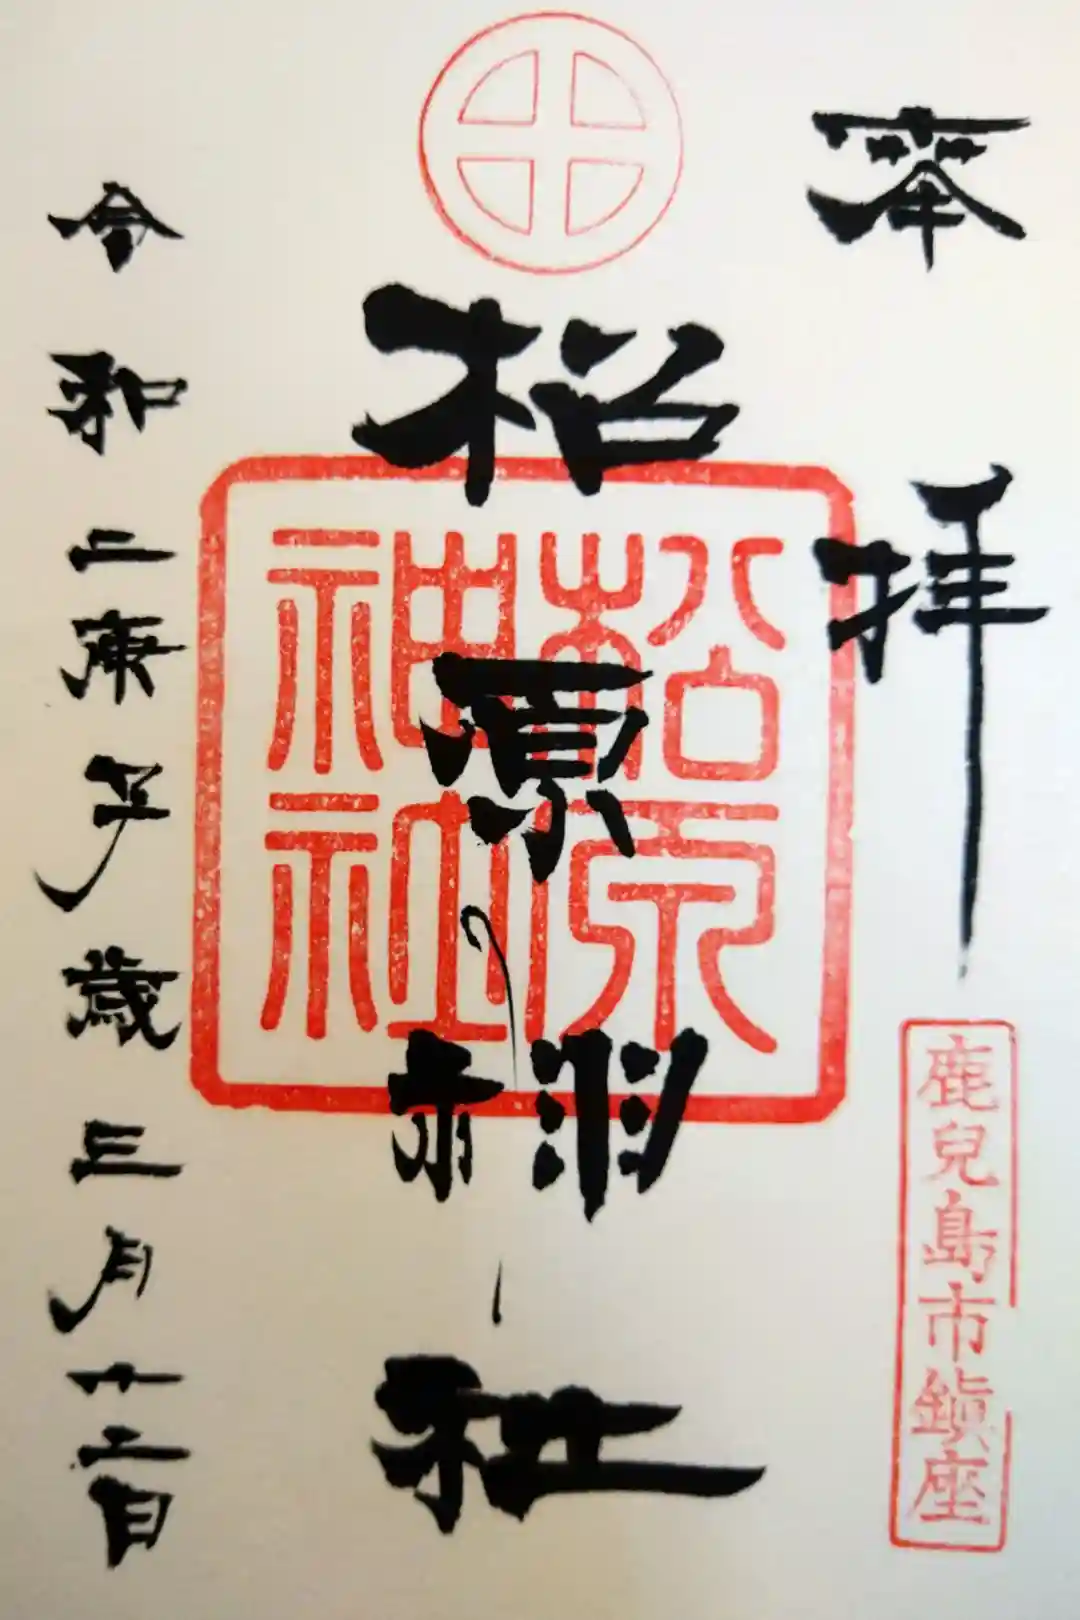 奉拝
鹿兒島市鎮座
松原神社
松原神社
令和二庚子歳三月廿二日